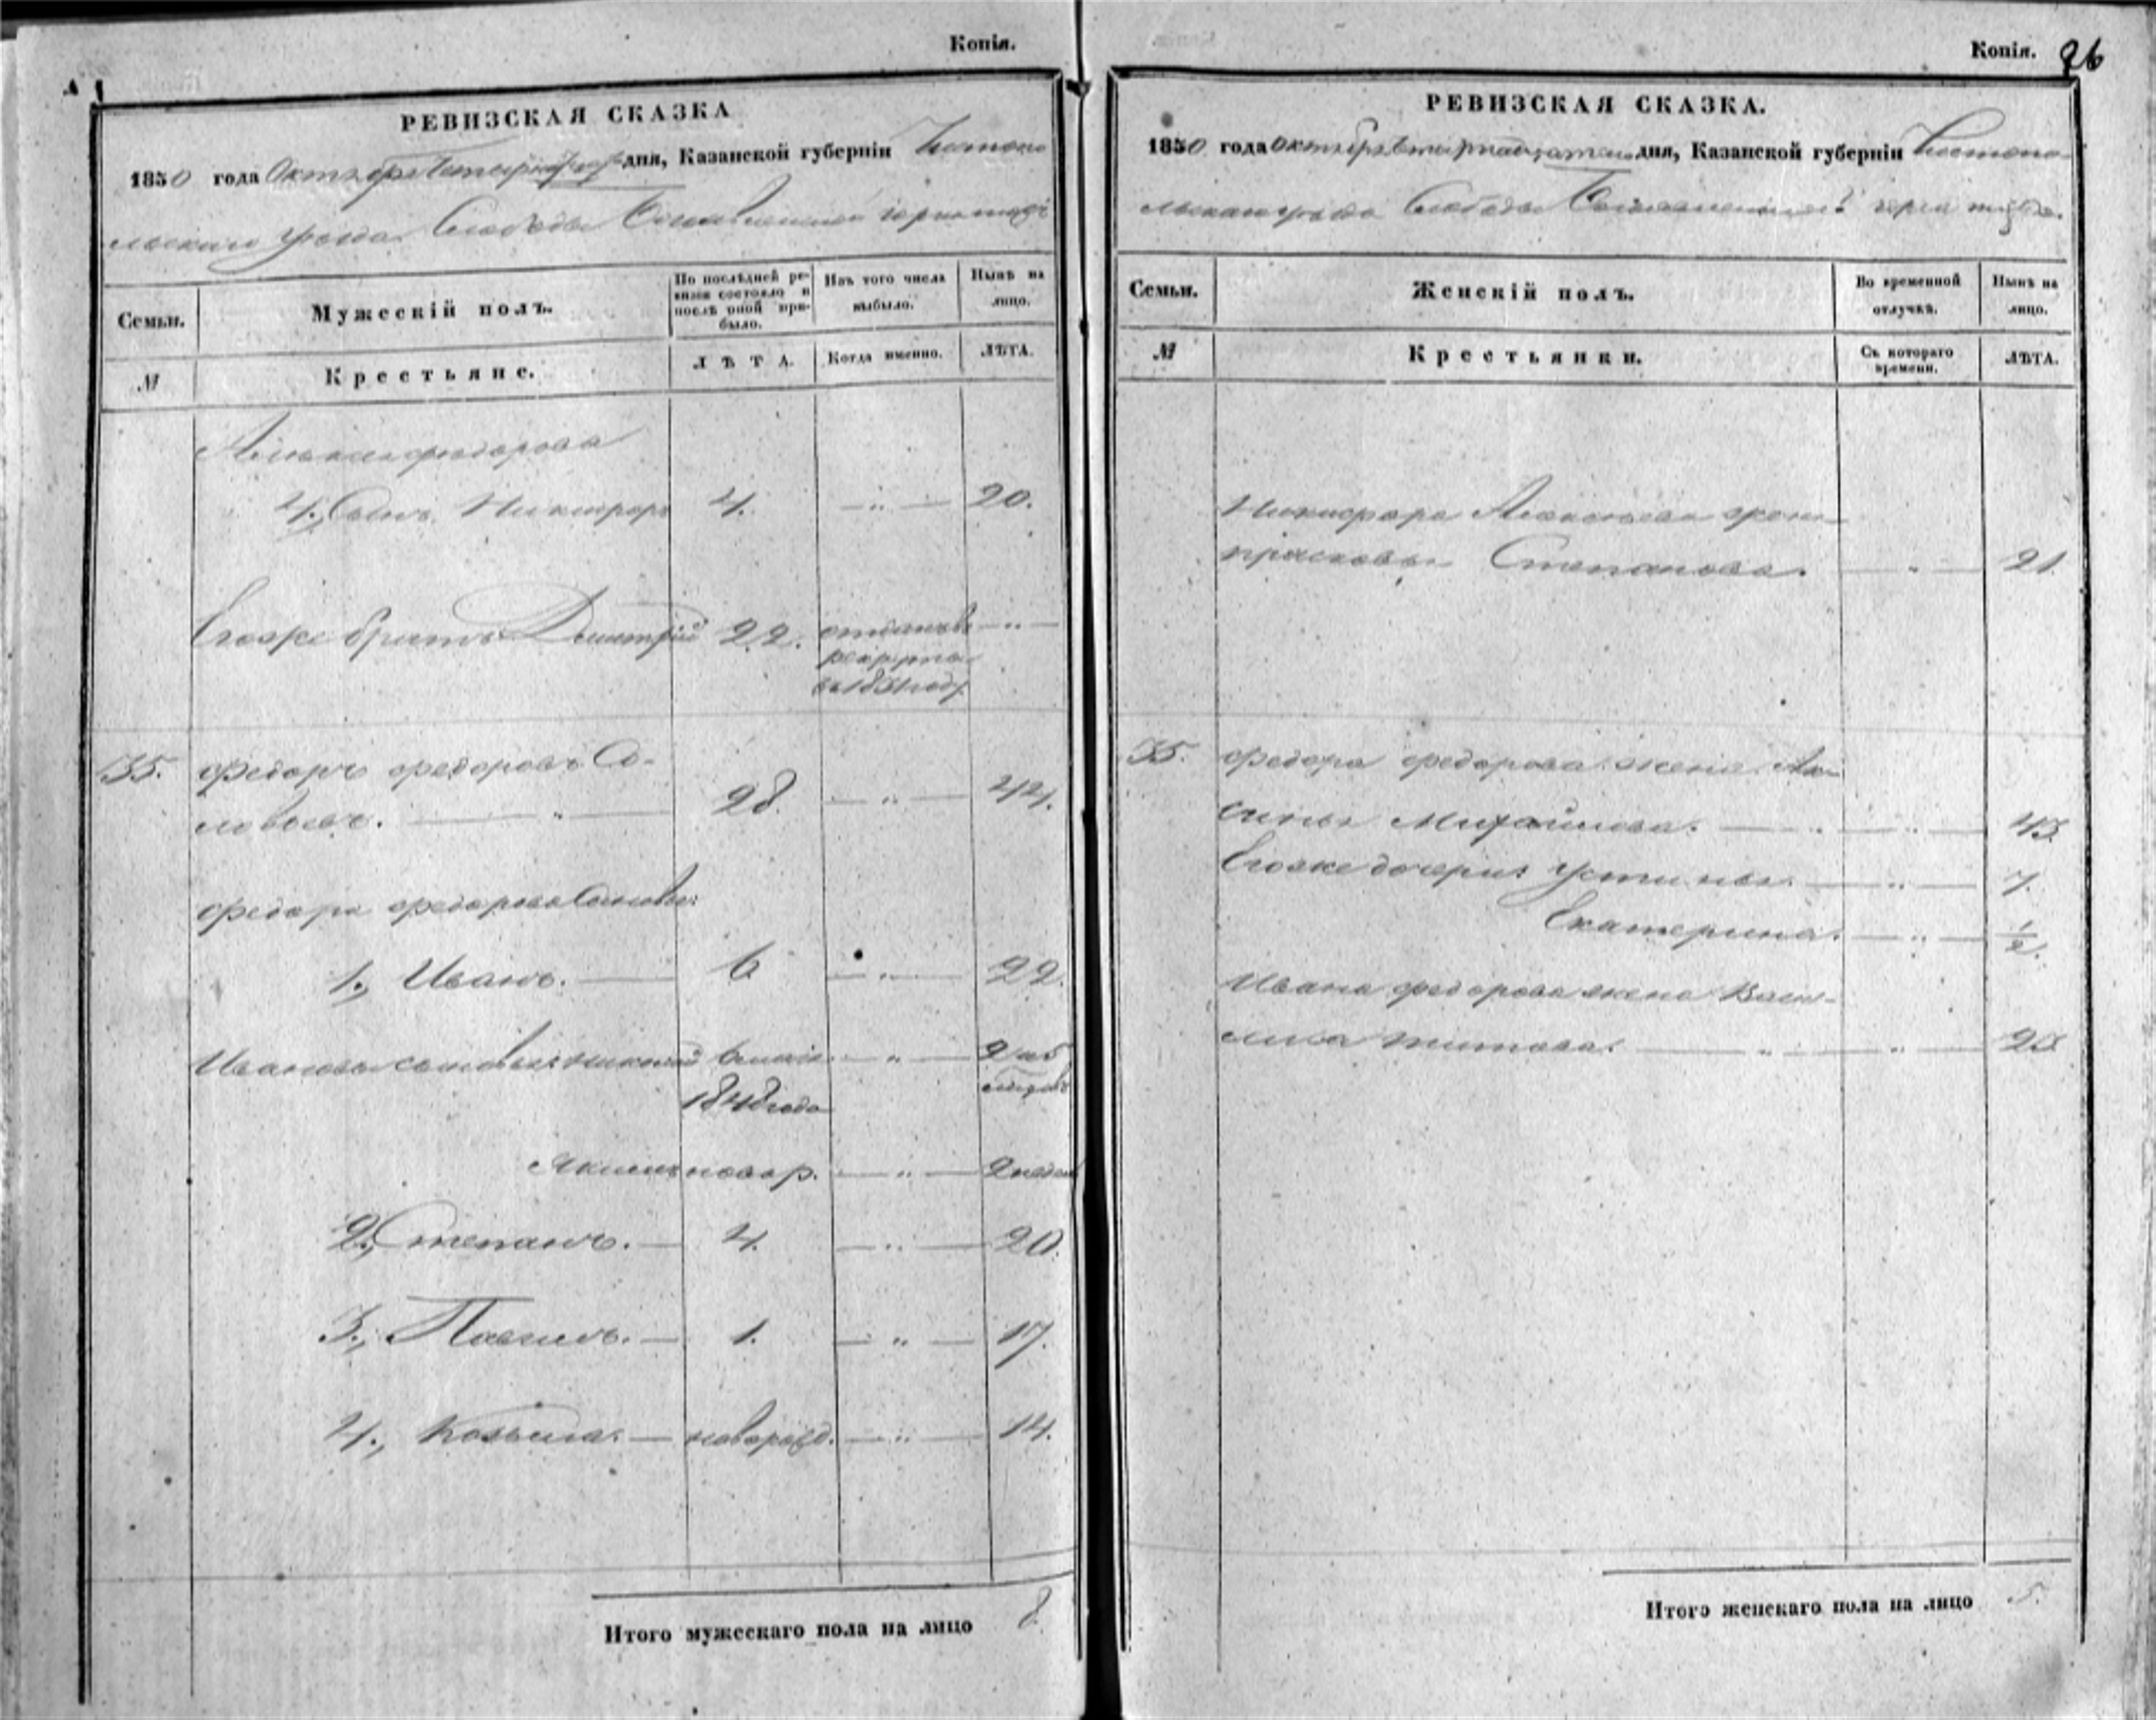 Копія.
РЕВИЗСКАЯ СКАЗКА
1850 года Октября Четырнадцат дня, Казанской губерніи Чистопо
льскаго уѣзда Слободы
Семьи.
Мужескій полъ.
По послѣдней ре-
визіи состояло и
послѣ оной при-
было.
Изъ того числа
выбыло.
Нынѣ на
лицо.
№
Крестьяне.
ЛѢТА.
Когда именно.
ЛѢТА.
Алексея федорова
4., Сынъ Никифоръ 4. — „ — 20.
Егоже братъ Дмитрій 22. отданъ въ — „ —
рекруты
въ 1834 году
35. Федоръ федоровъ Со-
ловьевъ. — „ — 28. — „ — 44.
Федора федорова Сыновья:
1., Иванъ. — 6 — „ — 22.
Ивановы сыновья: Николай 6 маія — „ — 2 ½
1848 года
Якимъ новор. — „ — 2 недел
2., Степанъ. — 4. — „ — 20.
3., Павелъ. — 1. — „ — 17.
4., Козьма. — новорожд. — „ — 14.
Итого мужескаго пола на лицо 8.
Копія. 26
РЕВИЗСКАЯ СКАЗКА.
1850 года Октября Четырнадцатаго дня, Казанской губерніи Чистопо-
льскаго уѣзда Слободы
Семьи.
Женскій полъ.
Во временной
отлучкѣ.
Нынѣ на
лицо.
№
Крестьянки.
Съ котораго
времени.
ЛѢТА.
Никифора Алексеева жена
прасковья Степанова. — „ — 21
35. Федора федорова жена Ак-
синья Михайлова. — „ — „ — 43
Егоже дочери: Устинья. — „ — 7.
Екатерина. — „ — ½.
Ивана федорова жена Васи-
лиса титова. — „ — „ — 23
Итого женскаго пола на лицо 5.